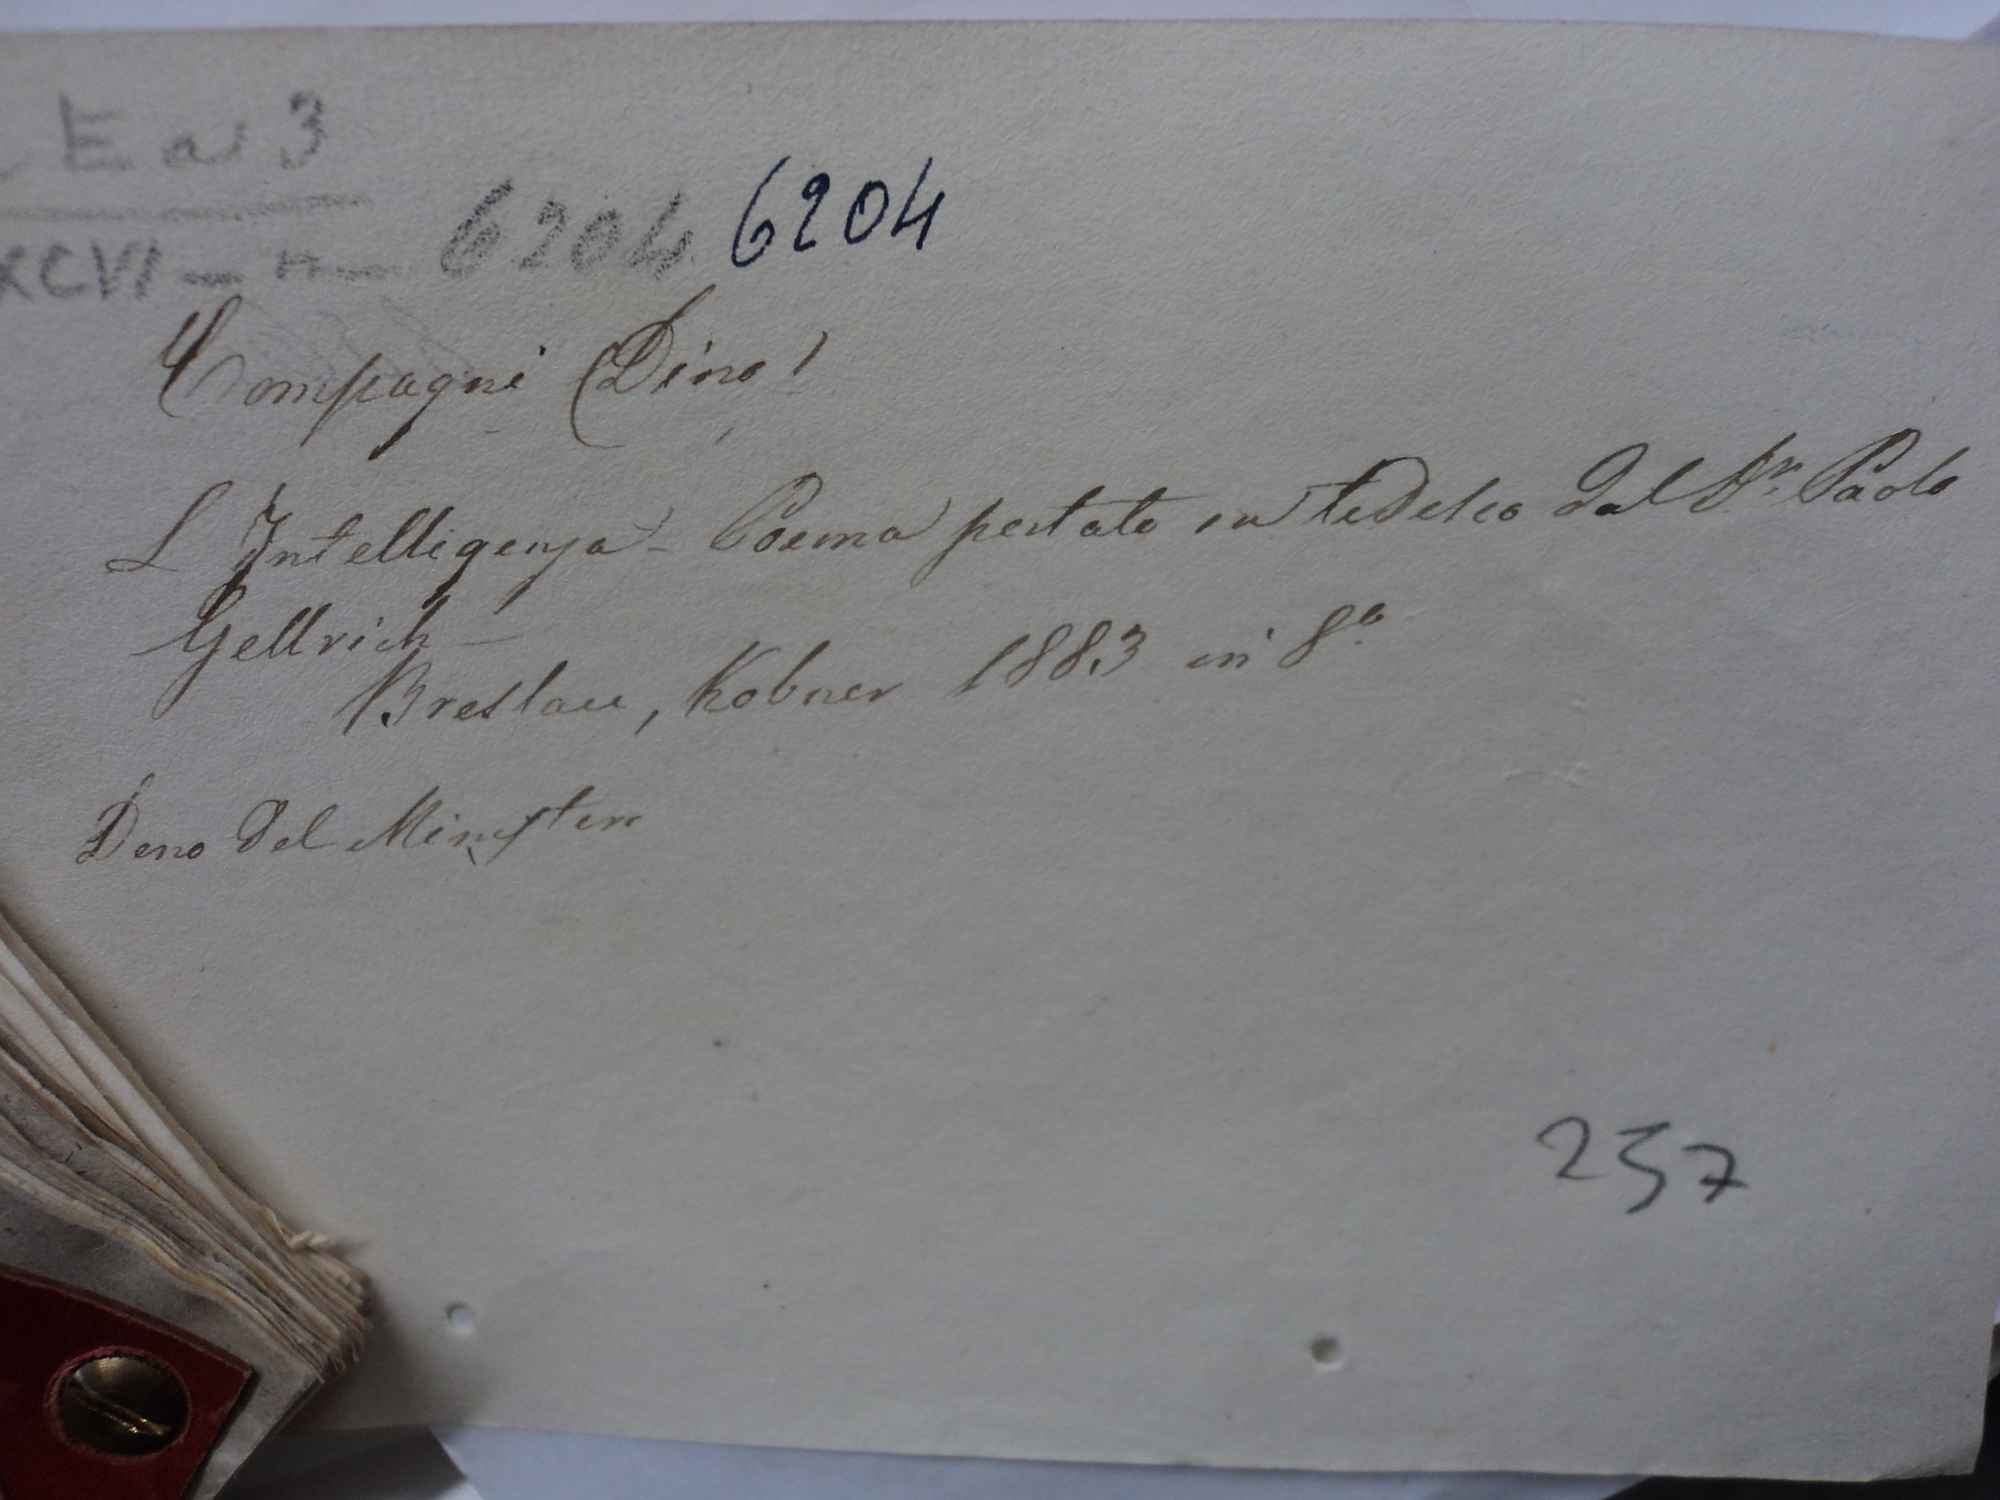 E a 3
XCVI — " — 6204 6204
Compagni (Dino)
L'Intelligenza - Poema portato in tedesco dal Dr. Paolo
Gellrich —
Breslau, Kobner 1883 in 8°.
Dono del Ministero
257